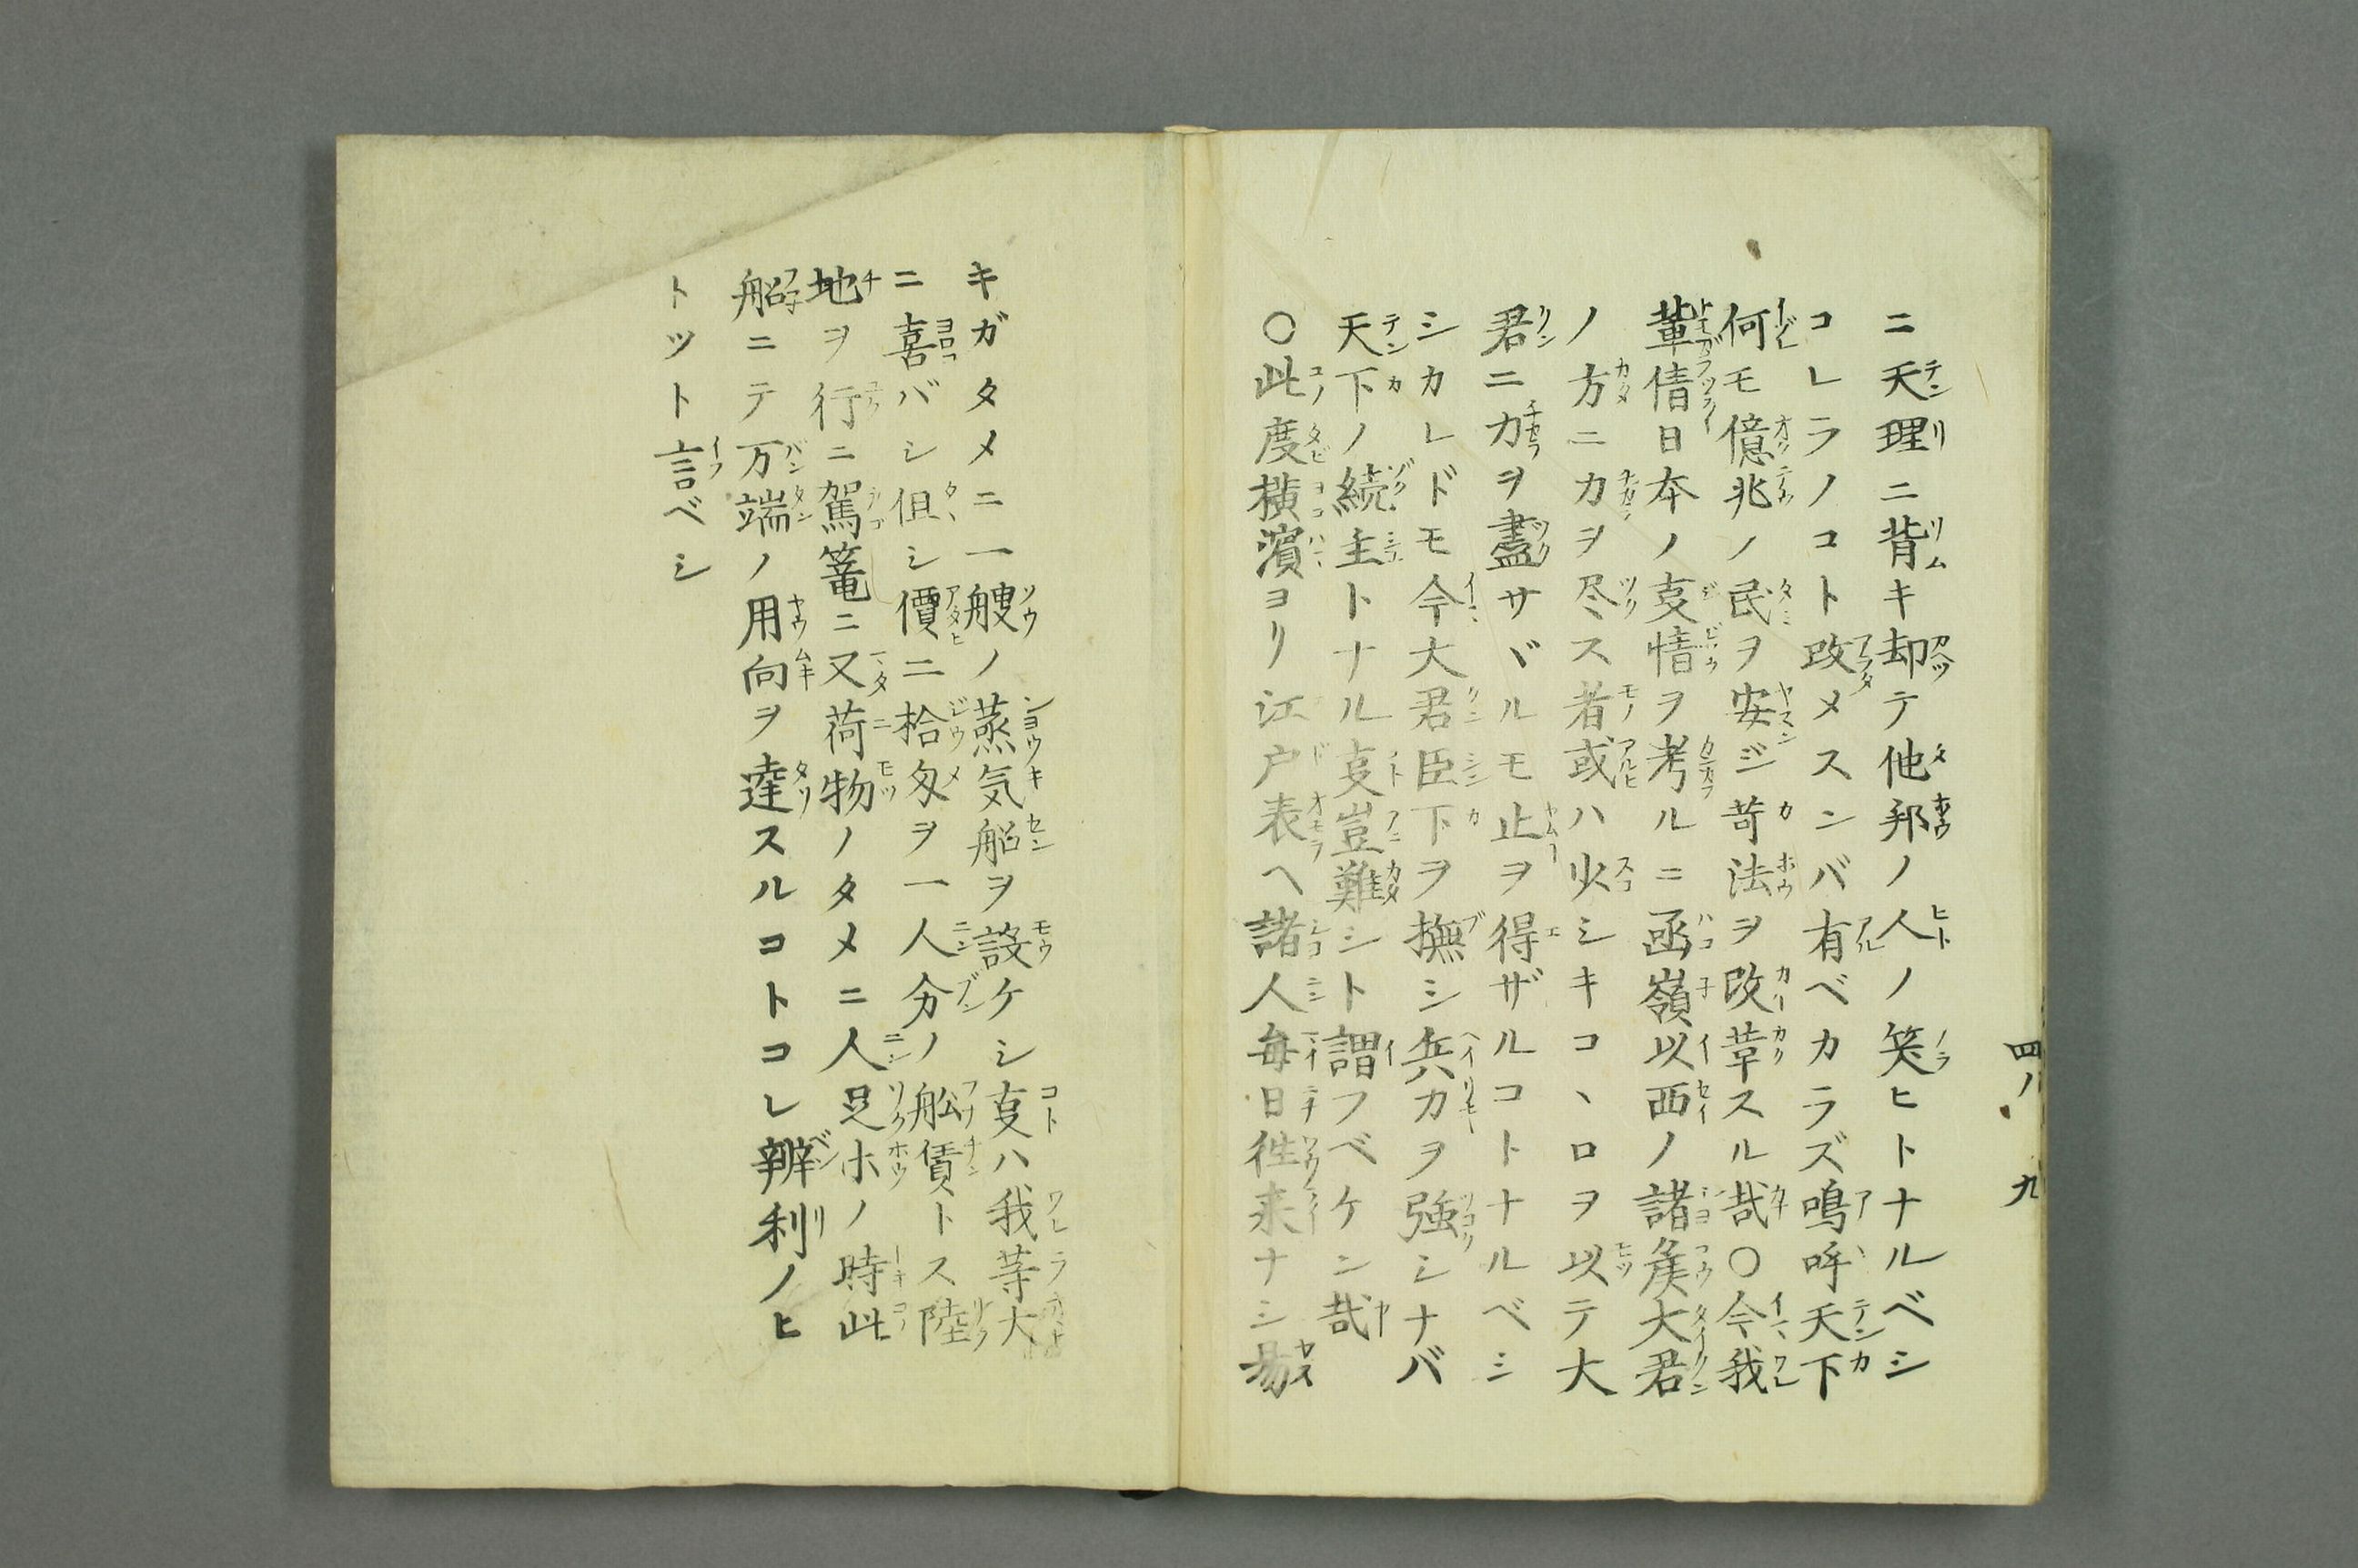 四ノ九
ニ天理ニ背キ却テ他邦ノ人ノ笑ヒトナルベシ
コレラノコト改メスンバ有ベカラズ鳴呼天下
何モ億兆ノ民ヲ安ジ苛法ヲ改革スル哉〇今我
輩倩日本ノ㕝情ヲ考ルニ函嶺以西ノ諸矦大君
ノ方ニカヲ尽ス者或ハ少シキコヽロヲ以テ大
君ニカヲ盡サヾルモ止ヲ得ザルコトナルベシ
シカレドモ今大君臣下ヲ撫シ兵カヲ強シナバ
天下ノ続主トナル㕝豈難シト謂フベケン哉
〇此度横濱ヨリ江戸表ヘ諸人毎日徃来ナシ易
キガタメニ一艘ノ蒸気船ヲ設ケシ㕝ハ我等大
ニ喜バシ伹シ價二拾匁ヲ一人分ノ舩賃トス陸
地ヲ行ニ駕篭ニ又荷物ノタメニ人足ホノ時此
船ニテ万端ノ用向ヲ達スルコトコレ辨利ノヒ
トツト言ベシ